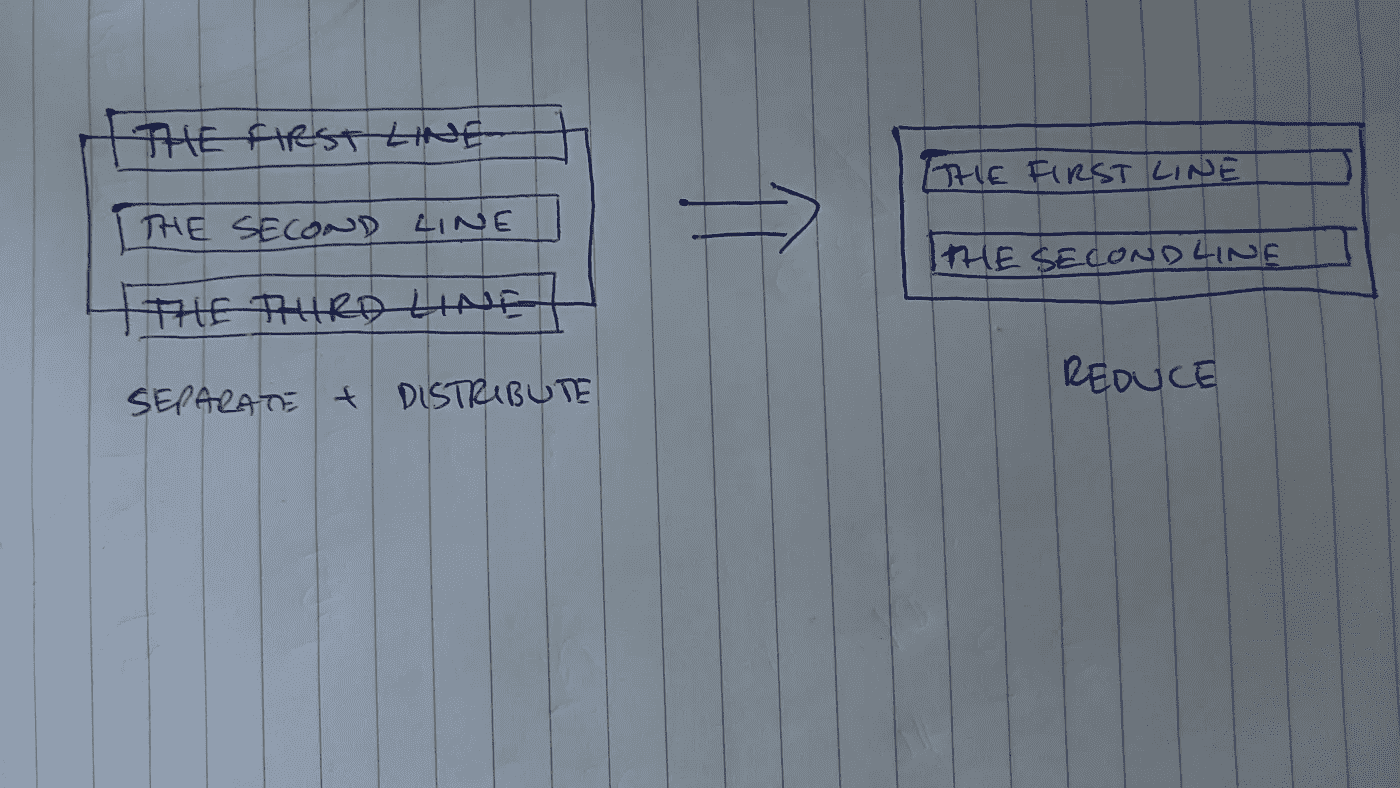 THE FIRST LINE
THE SECOND LINE
THE THIRD LINE
SEPARATE + DISTRIBUTE
THE FIRST LINE
THE SECOND LINE
REDUCE